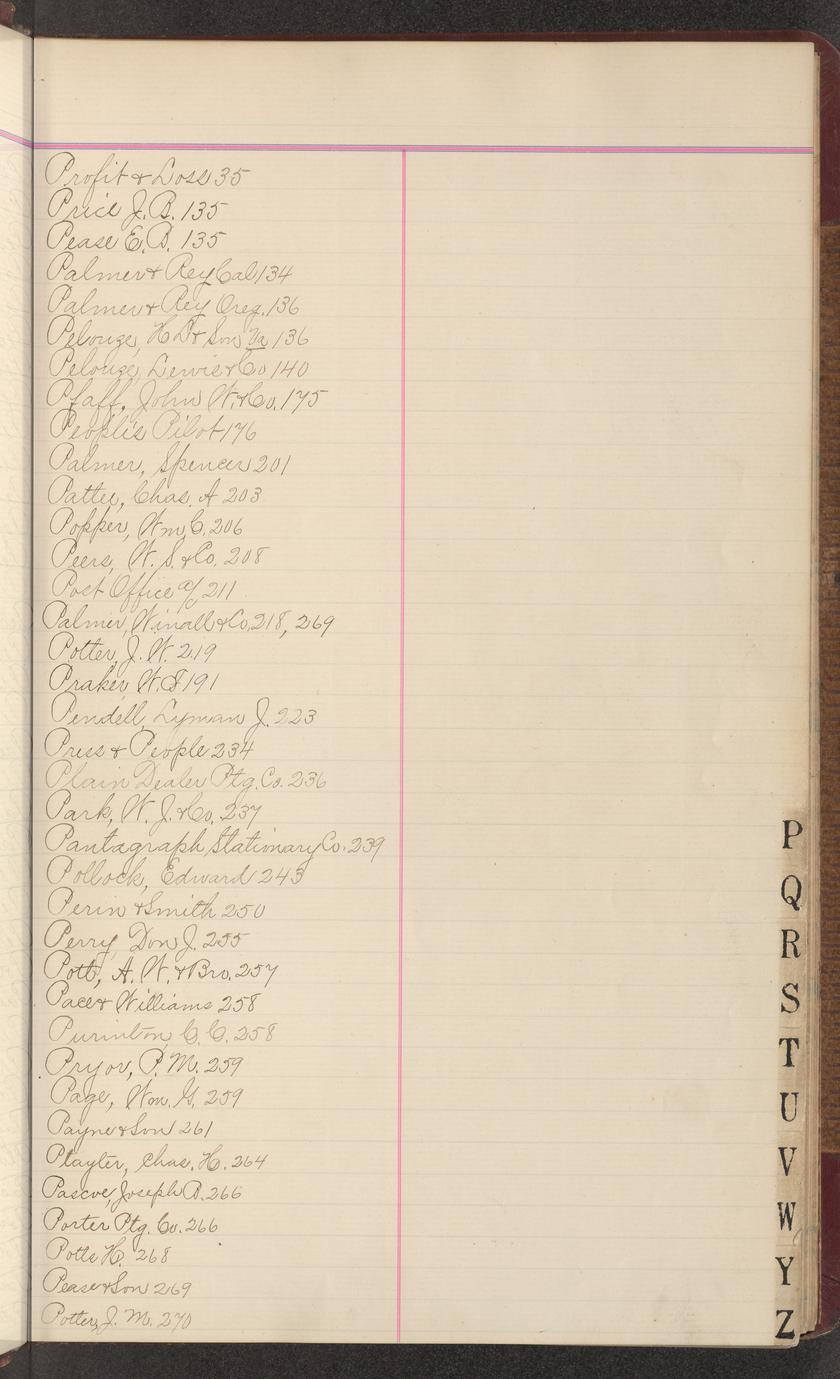 Profit & Loss 35
Price J. B. 135
Pease E. B. 135
Palmer & Rey Cal 134
Palmer & Rey Oreg. 136
Pelouze, H D & Son Va 136
Pelouze, Lewis & Co 140
Pfaff, John W. & Co. 175
People's Pilot 176
Palmer, Spencer 201
Pattee, Chas. A 203
Popper, Wm. C. 206
Peers, W. S. & Co. 208
Post Office a/c 211
Palmer, Winall & Co. 218, 269
Potter, J. W. 219
Praker, W. F 191
Pendell, Lyman J. 223
Press & People 234
Plain Dealer Ptg. Co. 236
Park, W. J. & Co. 237
Pantagraph Stationary Co. 239
Pollock, Edward 243
Perin & Smith 250
Perry, Don J. 255
Pott, A. W. & Bro. 257
Pace & Williams 258
Purinton, C. C. 258
Pryor, P. M. 259
Page, Wm. G. 259
Payne & Son 261
Playter, Chas. H. 264
Pascoe, Joseph B. 266
Porter Ptg. Co. 266
Potts H. 268
Pease & Son 269
Potter, J. M. 270
P
Q
R
S
T
U
V
W
Y
Z